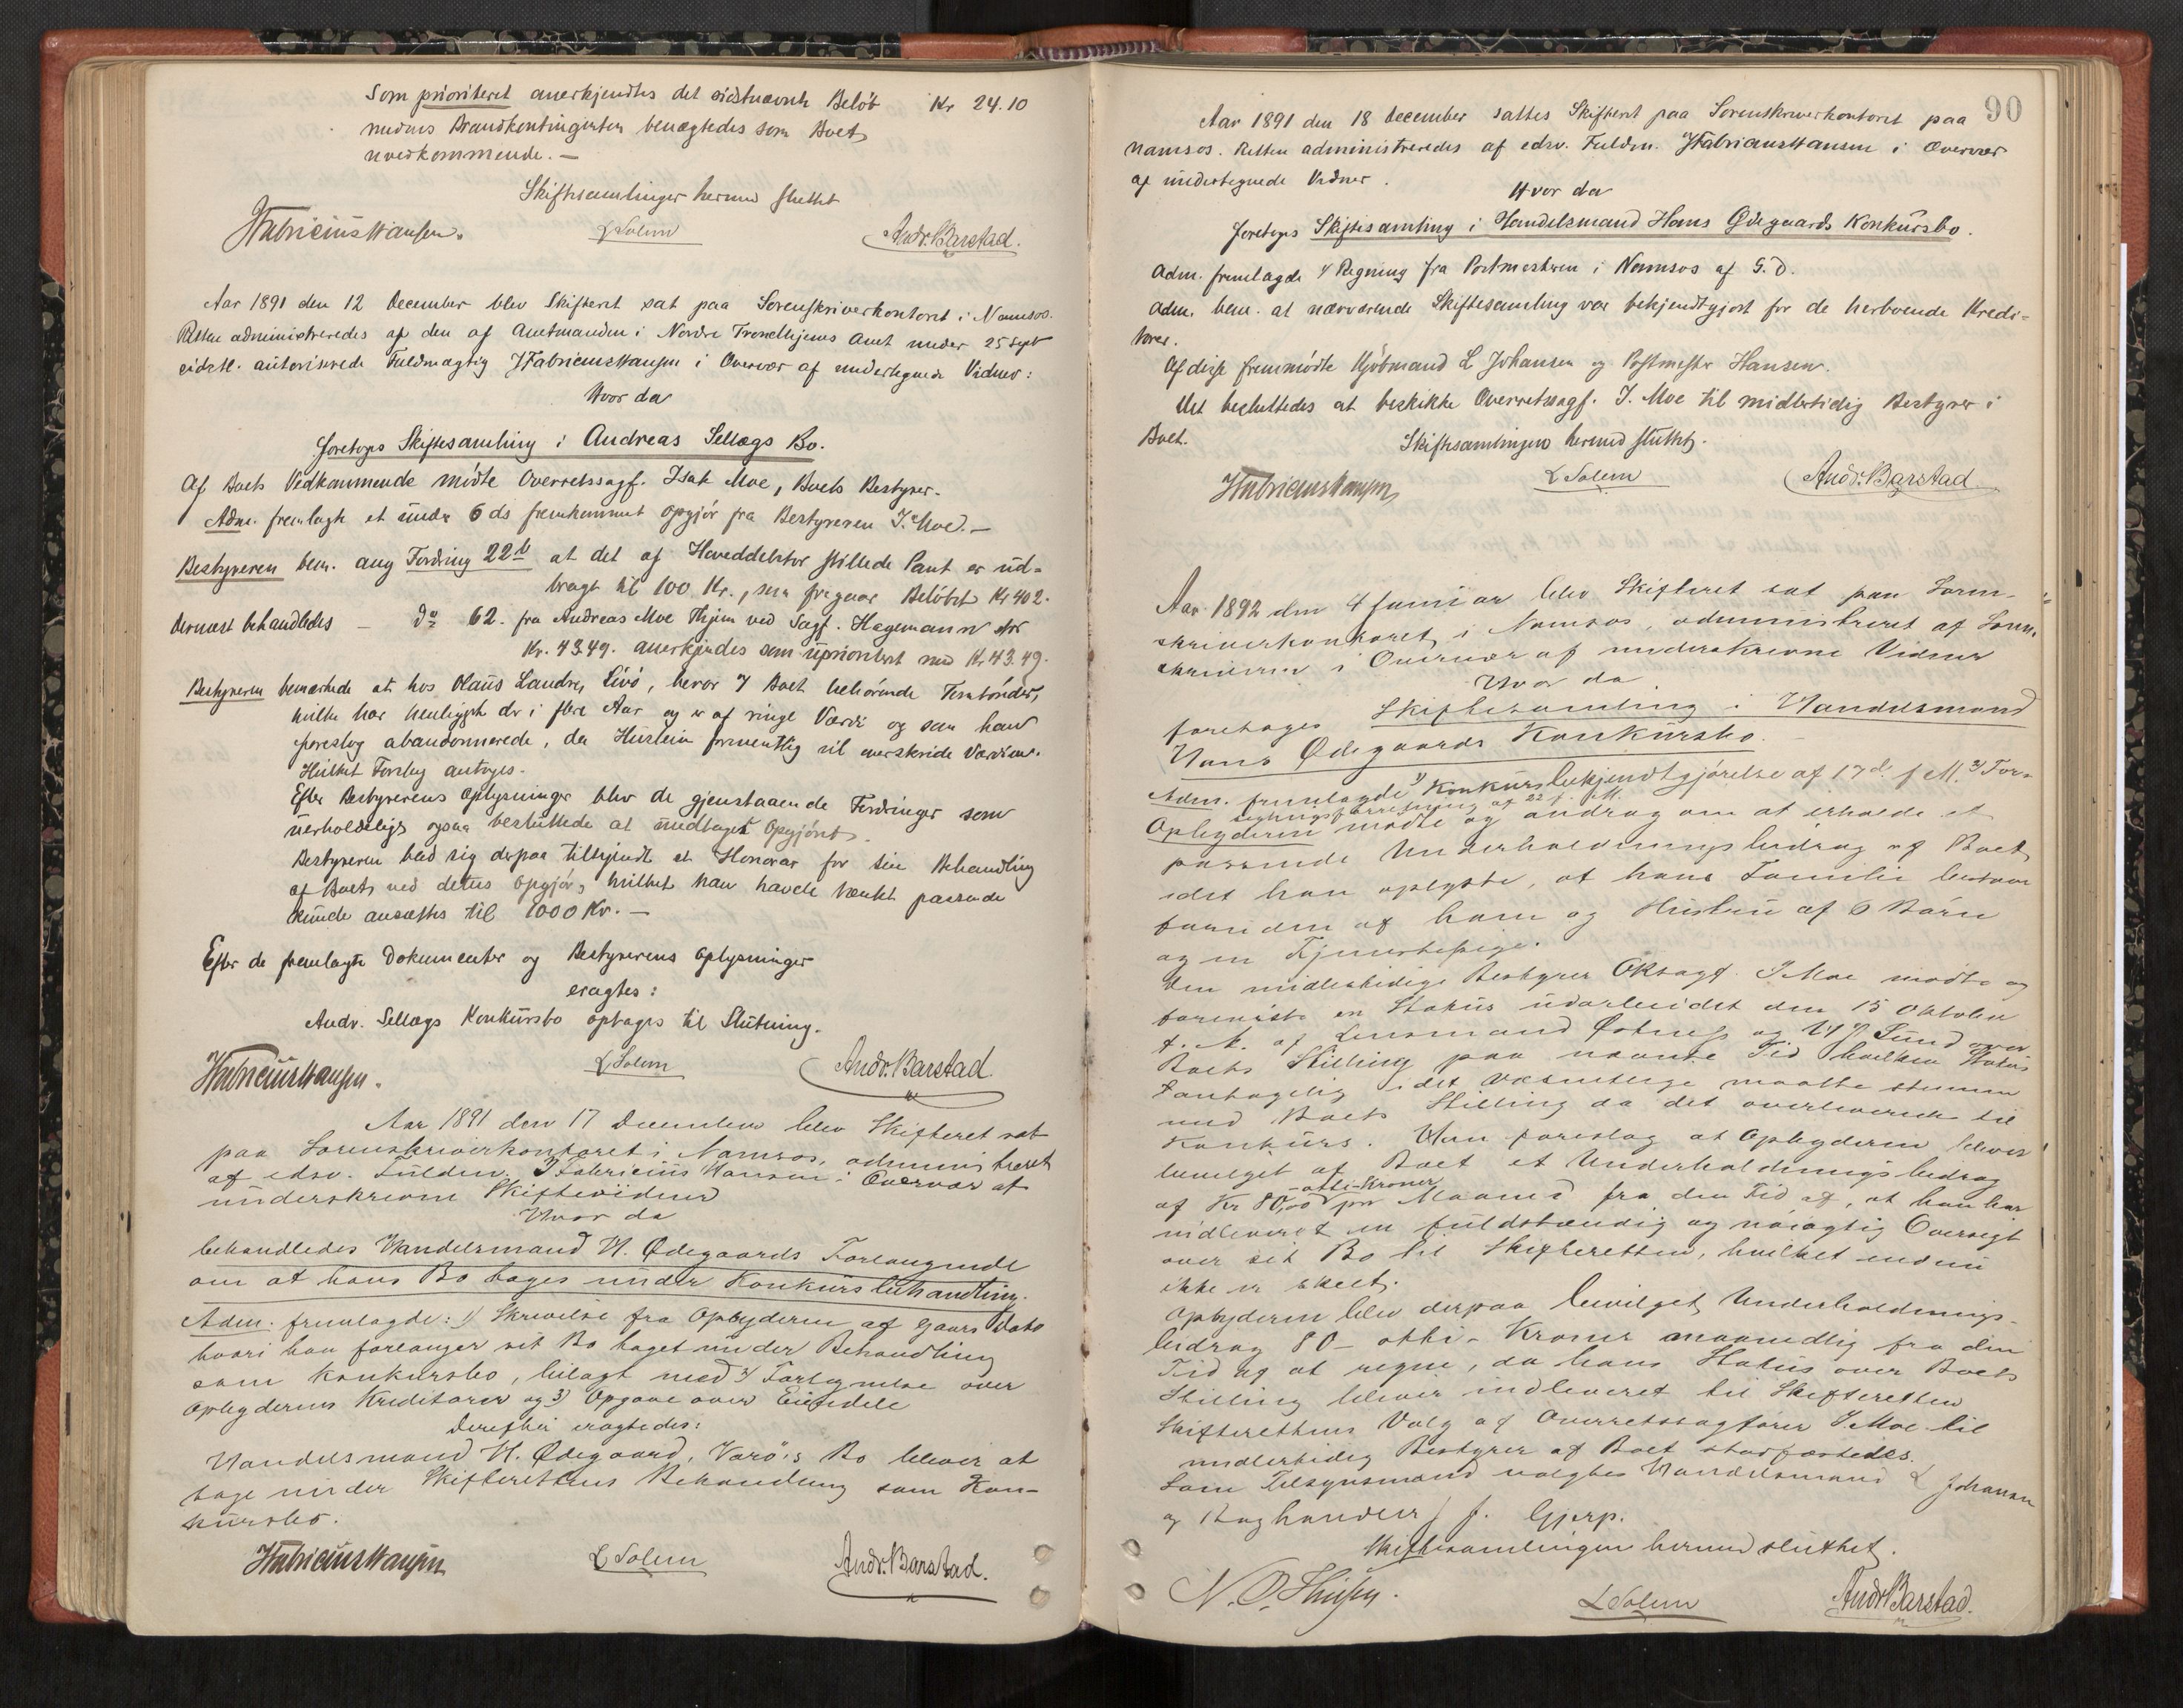 Som prioriteret anerkjendtes det sidstnævnte Beløb Kr 24.10
medens Brandkontingenten benægtedes som Boet
uvedkommende. —
Skiftesamlingen hermed sluttet
JFabriciusHansen. L Solem Andr. Barstad.
Aar 1891 den 12 December blev Skifteret sat paa Sorenskriverkontoret i Namsos.
Retten administreredes af den af Amtmanden i Nordre Trondhjems Amt under 25 Sept
sidstl. autoriserede Fuldmægtig JFabriciusHansen i Overvær af undertegnede Vidner:
Hvor da
foretoges Skiftesamling i Andreas Sellægs Bo.
Af Boets Vedkommende mødte Overretssagf. Isak Moe, Boets Bestyrer.
Adm. fremlagde et under 6 ds fremkommet Opgjør fra Bestyreren I. Moe. —
Bestyreren bem. ang Fordring 22b at det af Hoveddebitor stillede Pant er ud-
bragt til 100 Kr., som fragaar Beløbet Kr 402.
Dernæst behandledes — do 62. fra Andreas Moe Thjem ved Sagf. Hagemann
Kr. 43.49. anerkjendes som uprioritert med Kr 43.49.
Bestyreren bemærkede at hos Olaus Landrø, Livø, beror 7 Boet tilhørende Tomtønder,
hvilke har henligget der i flere Aar og er af ringe Værdi og som han
foreslog abandonnerede, da Husleien formentlig vil overskride Værdien.
Hvilket Forslag antoges.
Efter Bestyrerens Oplysninger blev de gjenstaaende Fordringer som
uerholdelige ogsaa besluttede at medtages Opgjøret.
Bestyreren bad sig derpaa tilkjendt et Honorar for sin Behandling
af Boet ved dettes Opgjør, hvilket han havde tænkt passende
kunde ansættes til 1000 Kr. —
Efter de fremlagte Dokumenter og Bestyrerens Oplysninger
eragtes:
Andr. Sellægs Konkursbo optages til Slutning.
JFabriciusHansen. L Solem Andr. Barstad
Aar 1891 den 17 December blev Skifteret sat
paa Sorenskriverkontoret i Namsos, administreret
af edsv. Fuldm. J Fabricius Hansen i Overvær af
underskrevne Skiftevidner
Hvor da
behandledes Handelsmand H. Ødegaards Forlangende
om at hans Bo tages under Konkursbehandling.
Adm. fremlagde: 1) Skrivelse fra Opbyderen af Gaars Dato
hvori han forlanger sit Bo taget under Behandling
som Konkursbo, bilagt med 2) Fortegnelse over
Opbyderens Kreditorer og 3) Opgave over Eiendele
Derefter eragtedes:
Handelsmand H. Ødegaard, Varø's Bo bliver at
tage under Skifterettens Behandling som Kon-
kursbo.
JFabriciusHansen L Solem Andr. Barstad.
90
Aar 1891 den 18 December sattes Skifteret paa Sorenskriverkontoret paa
Namsos. Retten administreredes af edsv. Fuldm. JFabriciusHansen i Overvær
af undertegnede Vidner.
Hvor da
foretoges Skiftesamling i Handelsmand Hans Ødegaards Konkursbo.
Adm. fremlagde 4 Regning fra Postmesteren i Namsos af G. D.
Adm. bem. at nærværende Skiftesamling var bekjendtgjort for de herboende Kredi-
torer.
Af disse fremmødte Kjøbmand L Johansen og Postmester Hansen.
Det besluttedes at beskikke Overretssagf. I. Moe til midlertidig Bestyrer i
Boet.
Skiftesamlingen hermed sluttet.
JFabriciusHansen L Solem Andr. Barstad
Aar 1892 den 4 Januar blev Skifteret sat paa Soren-
skriverkontoret i Namsos, administreret af Soren-
skriveren i Overvær af underskrevne Vidner
Hvor da
foretoges Skiftesamling i Handelsmand
Hans Ødegaards Konkursbo.
Adm. fremlagde 1) Konkursbekjendtgjørelse af 17d. f. M. 2) For-
seglingsforretning af 22 f. M.
Opbyderen mødte og androg om at erholde et
passende Underholdningsbidrag af Boet
idet han oplyste, at hans Familie bestaar
foruden af ham og Hustru af 6 Børn
og en Tjenestepige.
Den midlertidige Bestyrer ORsagf. I Moe mødte og
foreviste en Status udarbeidet den 15 Oktober
f. A. af Lensmand Østnes og Sund over
Boets Stilling paa nævnte Tid hvilken Status
antagelig i det væsentlige maatte stemme
med Boets Stilling da det overleveredes til
Konkurs. Han foreslog at Opbyderen blever
bevilget af Boet et Underholdningsbidrag
af Kr 80,00 -otti Kroner pr Maaned fra den Tid af, at han har
indleveret en fuldstændig og nøiagtig Oversigt
over sit Bo til Skifteretten, hvilket endnu
ikke er skeet.
Opbyderen blev derpaa bevilget Underholdnings-
bidrag 80 - otti - Kroner maanedlig fra den
Tid af at regne, da hans Status over Boets
Stilling bliver indleveret til Skifteretten
Skifterettens Valg af Overretssagfører I. Moe til
midlertidig Bestyrer af Boet stadfæstedes.
Som Tilsynsmænd valgtes Handelsmand L Johansen
og Boghandler J. Gjerp.
Skiftesamlingen hermed sluttet.
N. O. L Solem Andr Barstad.